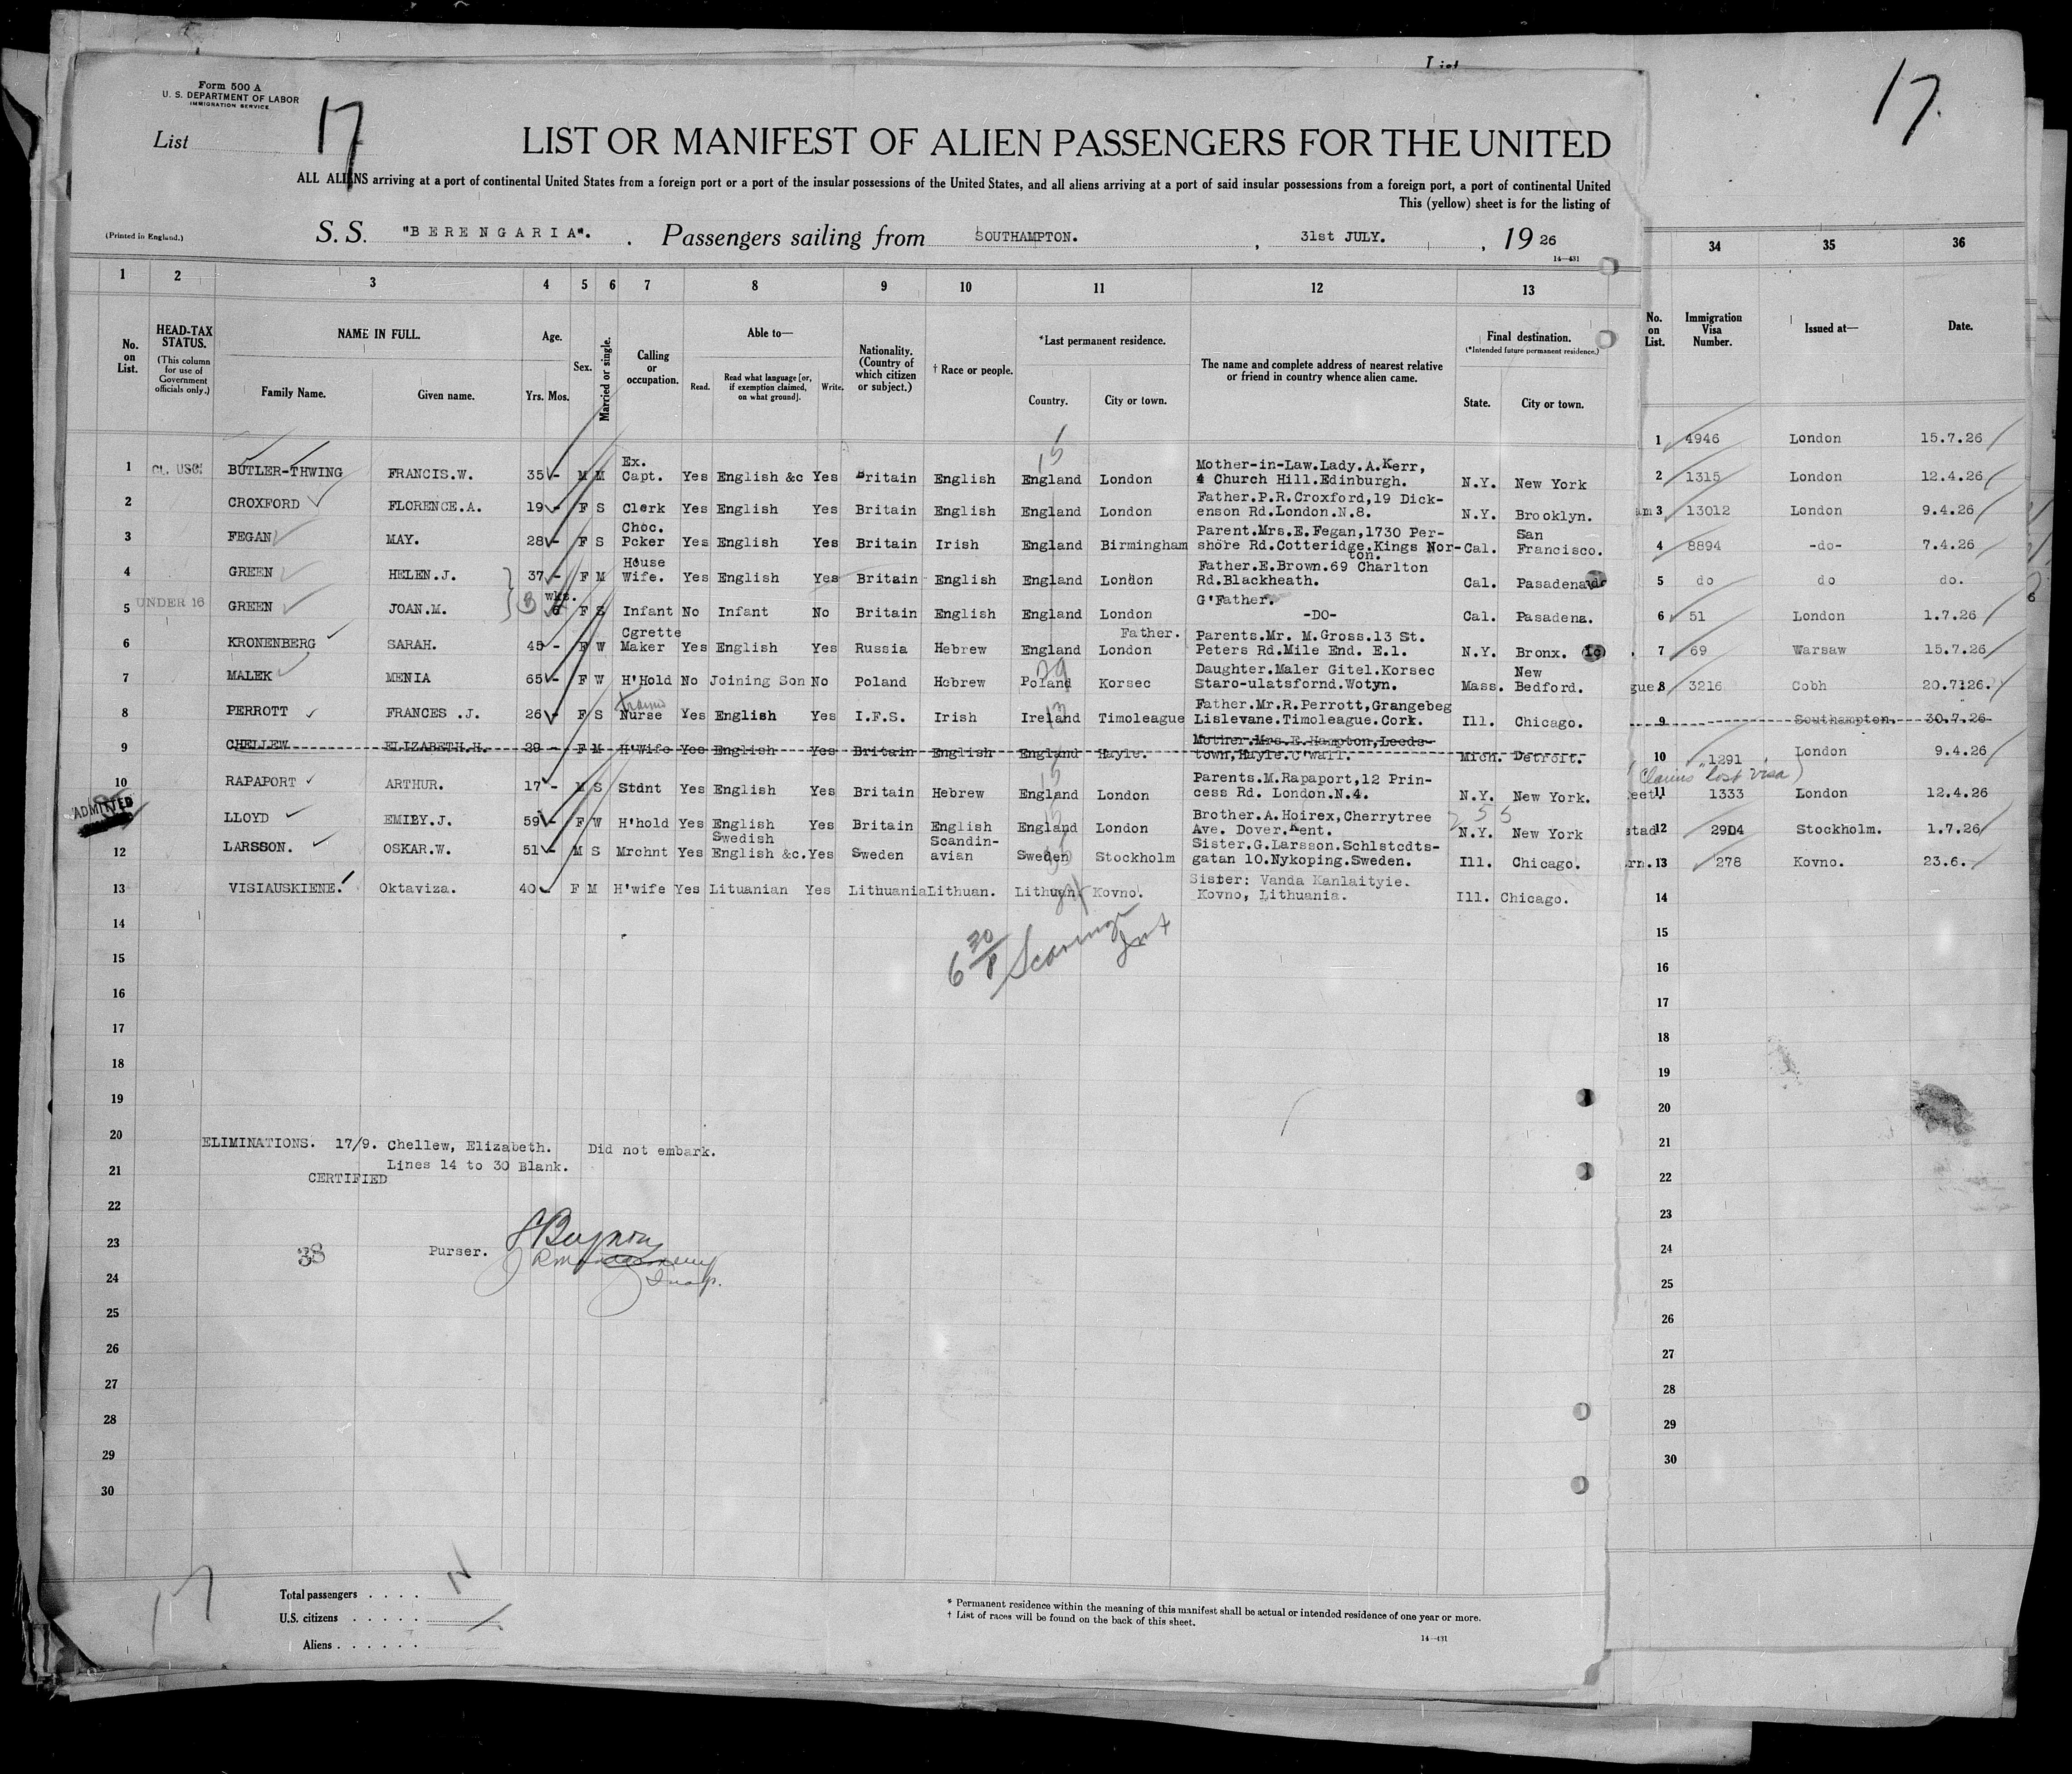 Form 500 A
U. S. DEPARTMENT OF LABOR
IMMIGRATION SERVICE
List 17
17.
LIST OR MANIFEST OF ALIEN PASSENGERS FOR THE UNITED
ALL ALIENS arriving at a port of continental United States from a foreign port or a port of the insular possessions of the United States, and all aliens arriving at a port of said insular possessions from a foreign port, a port of continental United
This (yellow) sheet is for the listing of
(Printed in England.)
S. S. "BERENGARIA". , Passengers sailing from SOUTHAMPTON. , 31st JULY. , 19 26
14—431
1 2 3 4 5 6 7 8 9 10 11 12 13 34 35 36
No. on List.
HEAD-TAX STATUS.
(This column for use of Government officials only.)
NAME IN FULL.
Family Name. Given name.
Age.
Yrs. Mos.
Sex.
Married or single.
Calling or occupation.
Able to—
Read. Read what language [or, if exemption claimed, on what ground]. Write.
Nationality. (Country of which citizen or subject.)
† Race or people.
*Last permanent residence.
Country. City or town.
The name and complete address of nearest relative or friend in country whence alien came.
Final destination.
(*Intended future permanent residence.)
State. City or town.
No. on List. Immigration Visa Number. Issued at— Date.
1 BUTLER-THWING FRANCIS.W. 35 - M M Ex. Capt. Yes English &c Yes Britain English England London Mother-in-Law.Lady.A.Kerr, 4 Church Hill.Edinburgh. N.Y. New York
2 CROXFORD FLORENCE.A. 19 - F S Clerk Yes English Yes Britain English England London Father.P.R.Croxford,19 Dick-enson Rd.London.N.8. N.Y. Brooklyn.
3 FEGAN MAY. 28 - F S Choc. Pcker Yes English Yes Britain Irish England Birmingham Parent.Mrs.E.Fegan,1730 Per-shore Rd.Cotteridge.Kings Nor-ton. Cal. San Francisco.
4 GREEN HELEN.J. 37 - F M House Wife. Yes English Yes Britain English England London Father.E.Brown.69 Charlton Rd.Blackheath. Cal. Pasadena
5 UNDER 16 GREEN JOAN.M. wks. 6 F S Infant No Infant No Britain English England London G'Father. -DO- Cal. Pasadena.
6 KRONENBERG SARAH. 45 - F W Cgrette Maker Yes English Yes Russia Hebrew England London Father. Parents.Mr. M.Gross.13 St. Peters Rd.Mile End. E.1. N.Y. Bronx.
7 MALEK MENIA 65 - F W H'Hold No Joining Son No Poland Hebrew Poland Korsec Daughter.Maler Gitel.Korsec Staro-ulatsfornd.Wotyn. Mass. New Bedford.
8 PERROTT FRANCES .J. 26 - F S Nurse Yes English Yes I.F.S. Irish Ireland Timoleague Father.Mr.R.Perrott,Grangebeg Lislevane.Timoleague.Cork. Ill. Chicago.
9 CHELLEW ELIZABETH.H. 29 - F M H'Wife Yes English Yes Britain English England Hayle. Mother.Mrs.E.Hampton,Leeds-town,Hayle.C'wall. Mich. Detroit.
10 RAPAPORT ARTHUR. 17 - M S Stdnt Yes English Yes Britain Hebrew England London Parents.M.Rapaport,12 Prin-cess Rd. London.N.4. N.Y. New York.
ADMITTED
LLOYD EMILY.J. 59 - F W H'hold Yes English Yes Britain English England London Brother.A.Hoirex,Cherrytree Ave. Dover.Kent. N.Y. New York
12 LARSSON. OSKAR.W. 51 - M S Mrchnt Yes Swedish English &c. Yes Sweden Scandin-avian Sweden Stockholm Sister.G.Larsson.Schlstcdts-gatan 10.Nykoping.Sweden. Ill. Chicago.
13 VISIAUSKIENE. Oktaviza. 40 F M H'wife Yes Lituanian Yes Lithuania Lithuan. Lithuan. Kovno. Sister: Vanda Kanlaityie. Kovno, Lithuania. Ill. Chicago.
14
15
16
17
18
19
20
21
22
23
24
25
26
27
28
29
30
1 4946 London 15.7.26
2 1315 London 12.4.26
3 13012 London 9.4.26
4 8894 -do- 7.4.26
5 do do do.
6 51 London 1.7.26
7 69 Warsaw 15.7.26
8 3216 Cobh 20.7.26.
9 Southampton. 30.7.26
10 1291 London 9.4.26
(Claims "lost visa)
11 1333 London 12.4.26
12 2904 Stockholm. 1.7.26
13 278 Kovno. 23.6.
14
15
16
17
18
19
20
21
22
23
24
25
26
27
28
29
30
ELIMINATIONS. 17/9. Chellew, Elizabeth. Did not embark.
Lines 14 to 30 Blank.
CERTIFIED
38 Purser.
17
Total passengers . . . .
U.S. citizens . . . . .
Aliens . . . . . .
* Permanent residence within the meaning of this manifest shall be actual or intended residence of one year or more.
† List of races will be found on the back of this sheet.
14—431